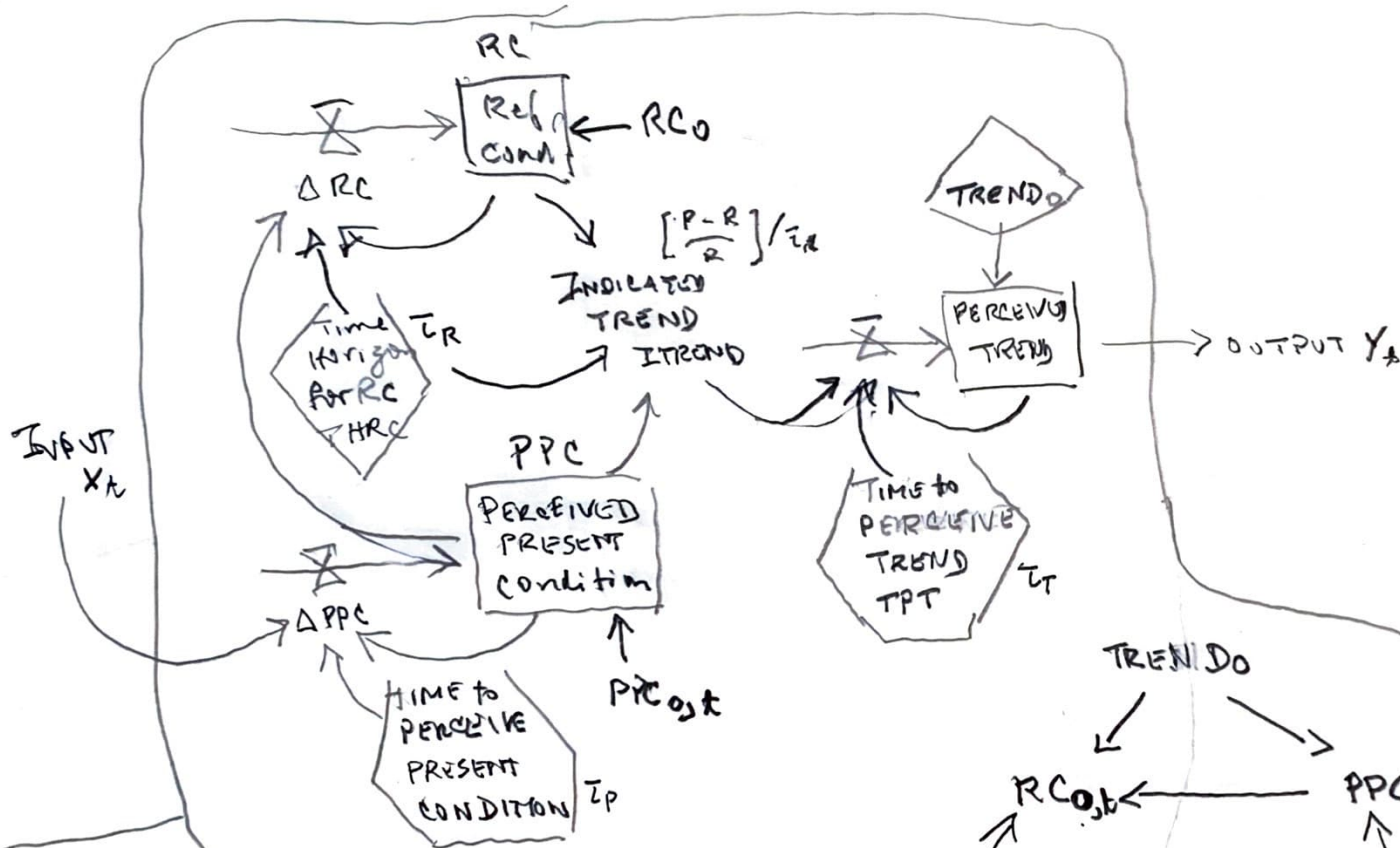 RC
Ref.
Cond
RC0
Δ RC
TREND0
[P-R
R]/τR
INDICATED
TREND
ITREND
PERCEIVED
TREND
OUTPUT Yt
Time
Horizon
for RC
THRC
τR
INPUT
Xt
PPC
PERCEIVED
PRESENT
Condition
Δ PPC
PPC0,t
TIME to
PERCEIVE
TREND
TPT
τT
TIME to
PERCEIVE
PRESENT
CONDITION
τP
TREND0
RC0,t
PPC